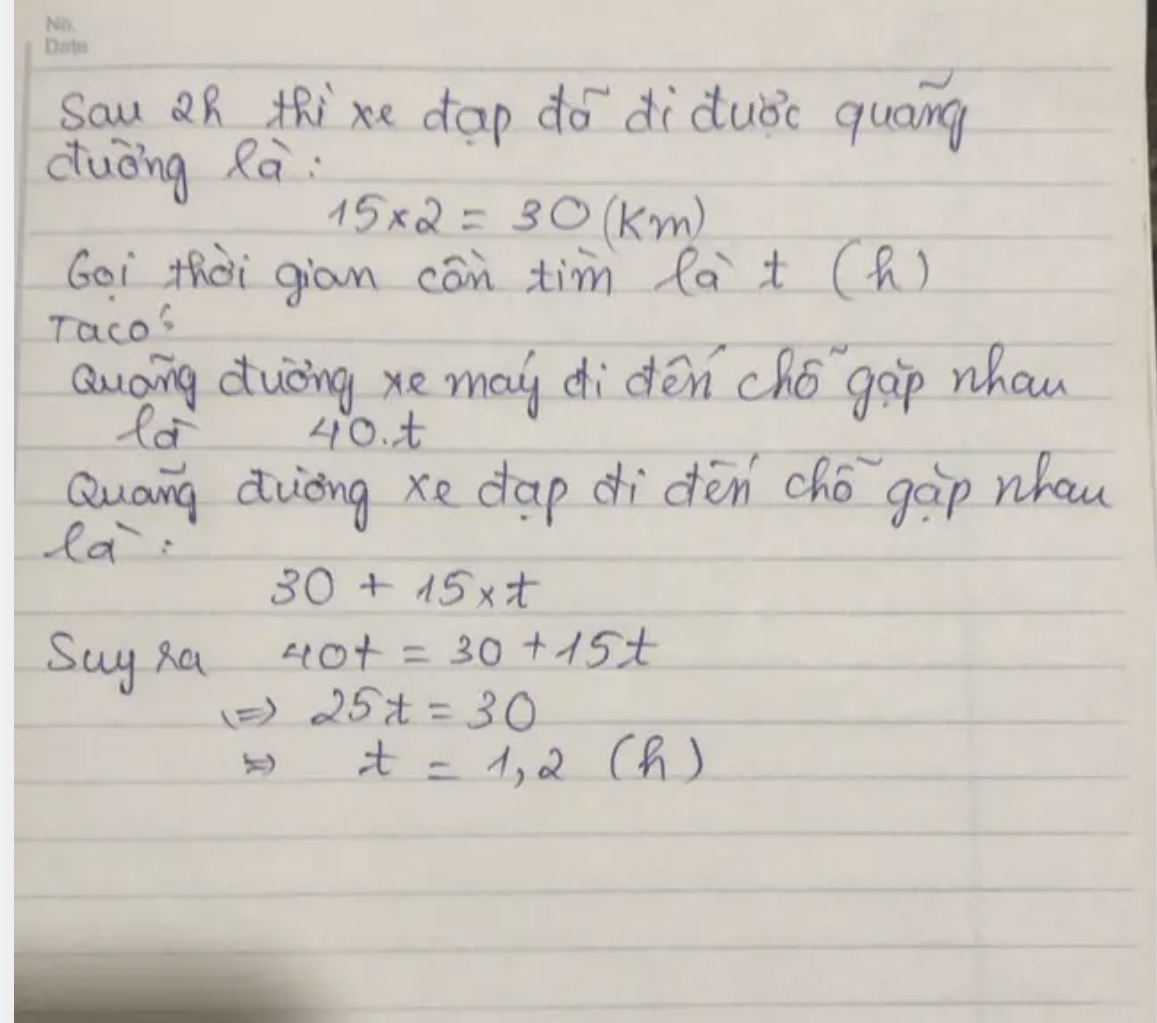 No.
Date
Sau 2h thì xe đạp đã đi được quãng
đường là:
15×2 = 30 (km)
Gọi thời gian cần tìm là t (h)
Ta có:
Quãng đường xe máy đi đến chỗ gặp nhau
là 40.t
Quãng đường xe đạp đi đến chỗ gặp nhau
là:
30 + 15×t
Suy ra 40t = 30 + 15t
(=) 25t = 30
=) t = 1,2 (h)